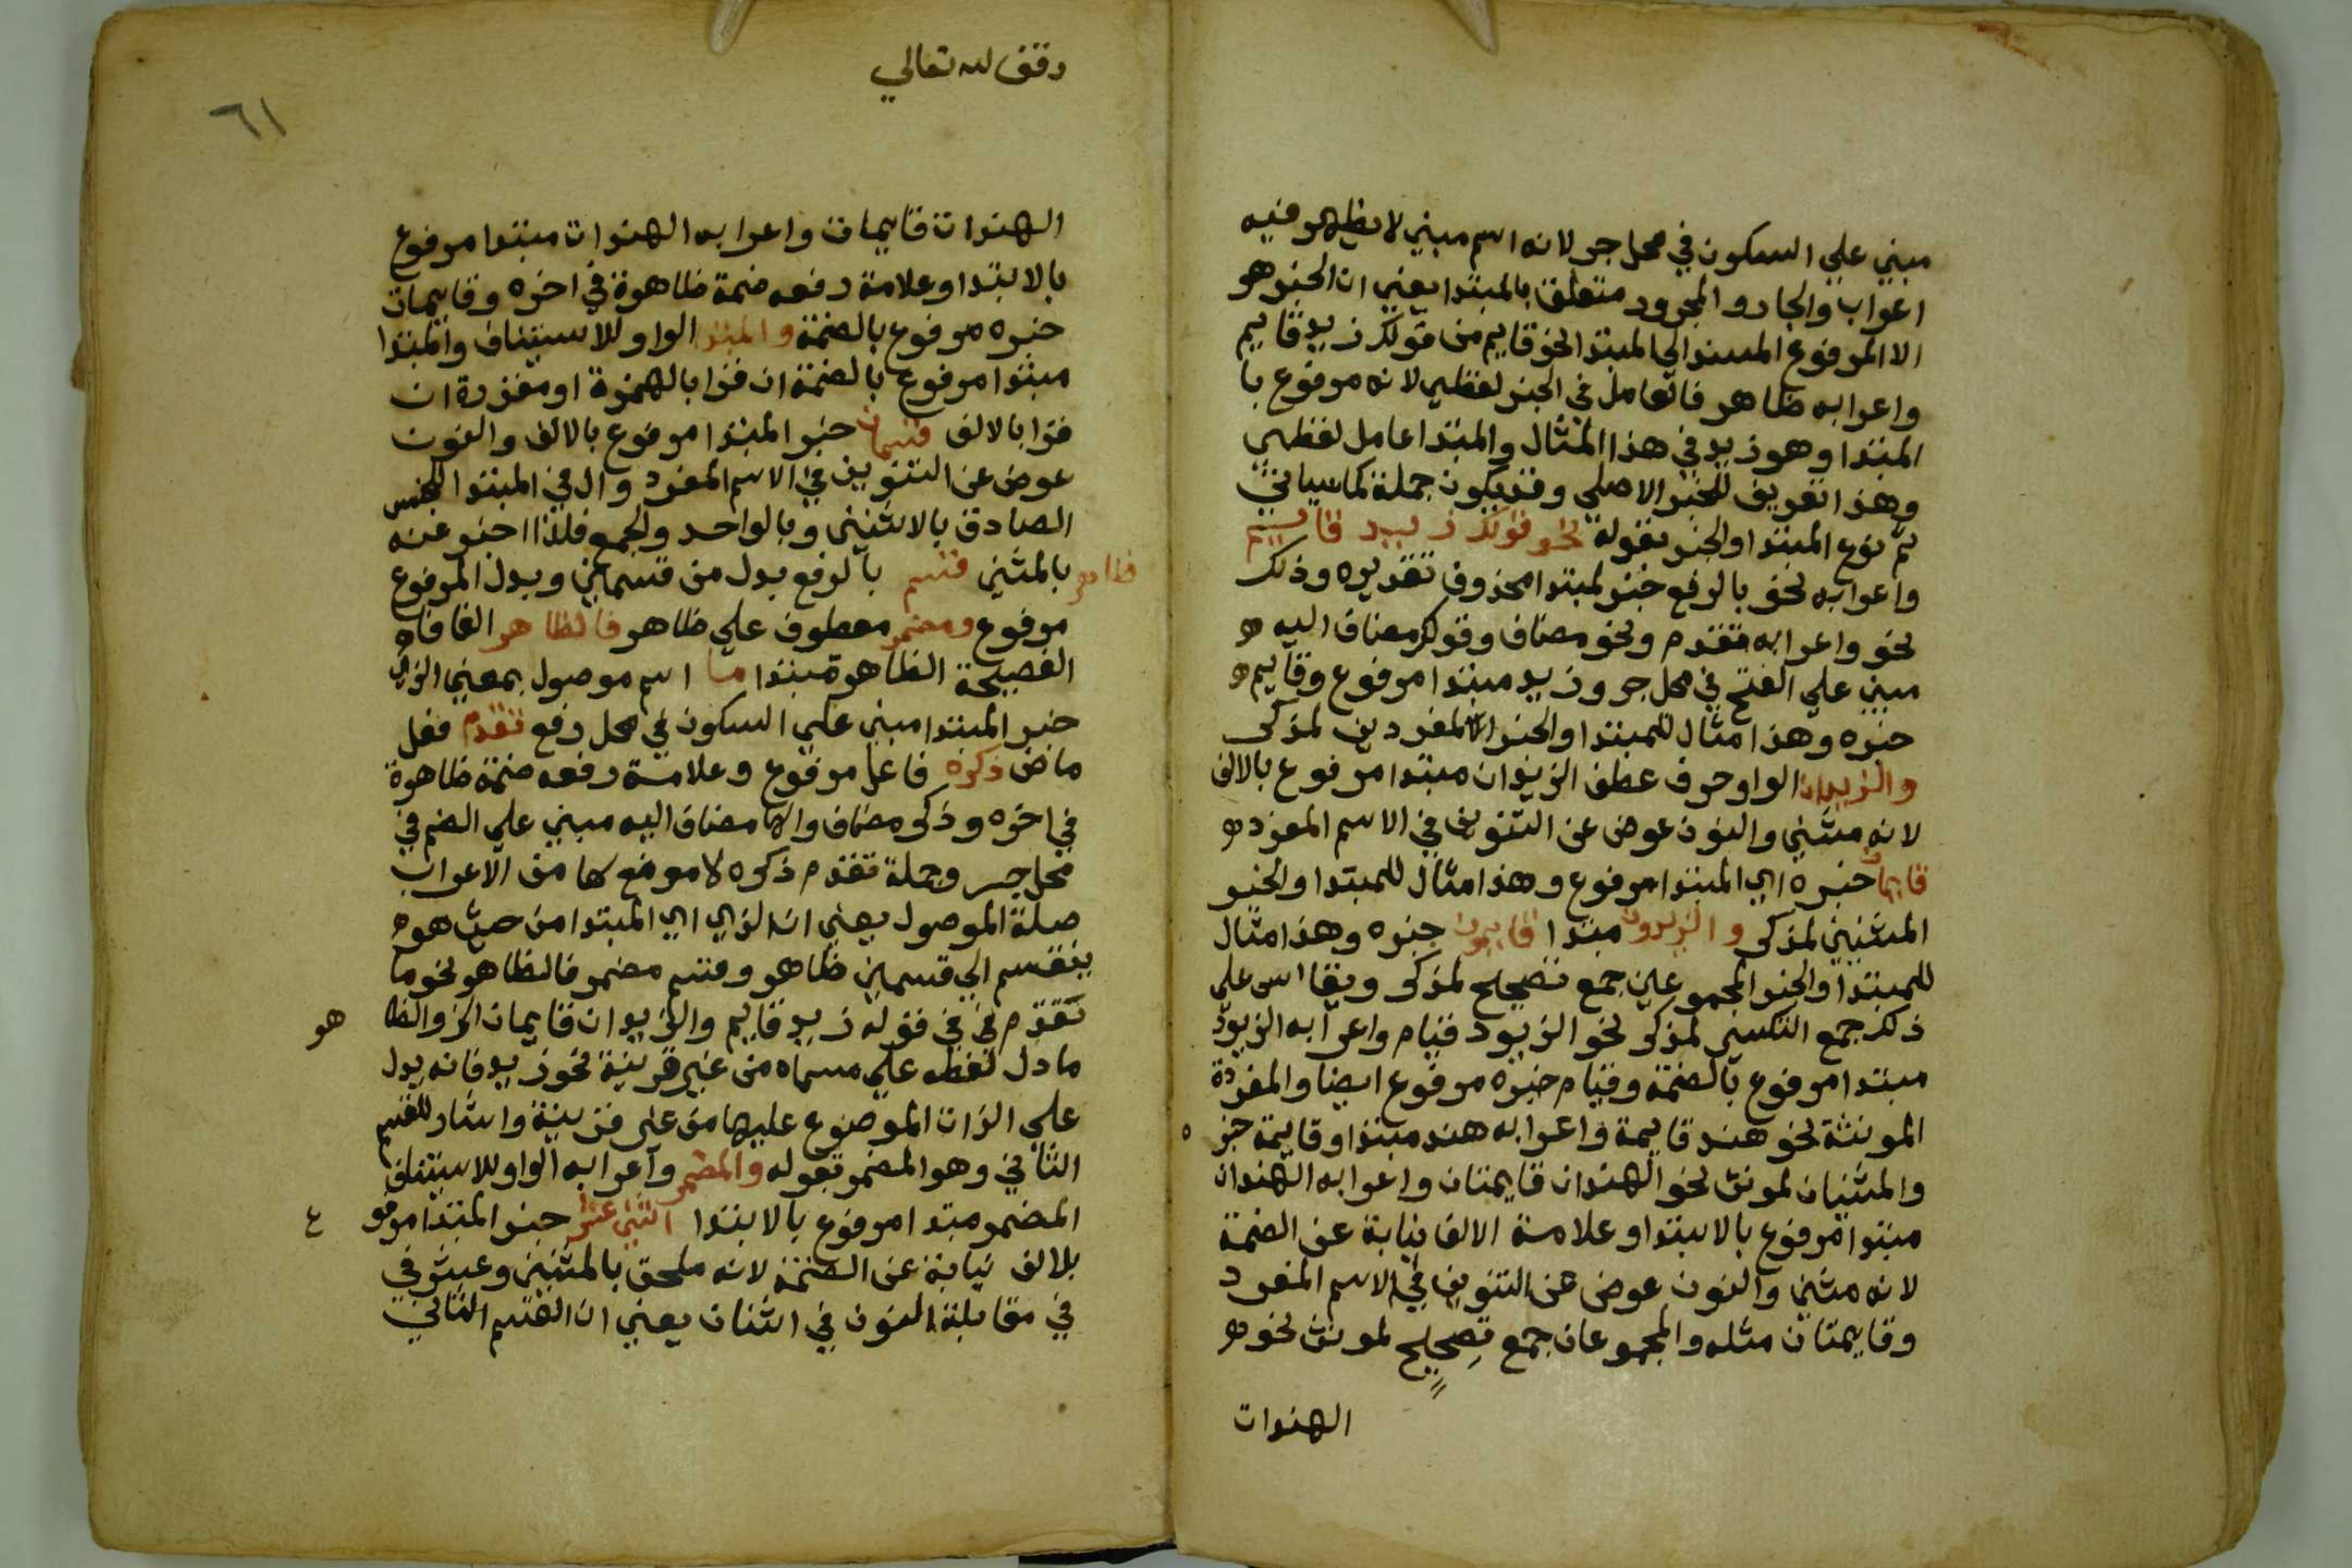 مبني علي السكون في محل جر لانه اسم مبني لا يظهر فيه
اعراب والجار و المجرور متعلق بالمبتدا يعني ان الخبر هو
الا المرفوع المسند الي المبتدا نحو قايم من قولك زيد قايم
واعرابه ظاهر فالعامل في الخبر لفظي لانه مرفوع با
المبتدا وهو زيد في هذا المثال والمبتدا عامل لفظي
وهذا تعريف للخبر الاصلي وقد يكون جملة كما سياتي
ثم نوع المبتدا والخبر بقوله نحو قولك زيد قايم
واعرابه نحو بالرفع خبر لمبتدا محذوف تقديره وذلك
نحو واعرابه تقدم ونحو مضاف وقولك مضاف اليه
مبني علي الفتح في محل جر وزيد مبتدا مرفوع وقايم
خبره وهذا مثال للمبتدا والخبر المفردين لمذكر
والزيدان الواو حرف عطف الزيدان مبتدا مرفوع بالالف
لانه مثني والنون عوض عن التنوين في الاسم المفرد
قايمان خبره اي المبتدا مرفوع وهذا مثال للمبتدا والخبر
المثنيين لمذكر والزيدون مبتدا قايمون خبره وهذا مثال
للمبتدا والخبر المجموعين جمع تصحيح لمذكر ويقاس علي
ذلك جمع التكسير لمذكر نحو الزيود قيام واعرابه الزيود
مبتدا مرفوع بالضمة وقيام خبره مرفوع ايضا والمفردة
المونثة نحو هند قايمة واعرابه هند مبتدا وقايمة خبر ه
والمثنيان لمونث نحو الهندان قايمتان واعرابه الهندان
مبتدا مرفوع بالابتدا وعلامة الالف نيابة عن الضمة
لانه مثني والنون عوض عن التنوين في الاسم المفرد
وقايمتان مثله والمجموعان جمع تصحيح لمونث نحو
الهندات
وقف لله تعالي
٦١
الهندات قايمات واعرابه الهندات مبتدا مرفوع
بالابتدا وعلامة رفعه ضمة ظاهرة في اخره وقايمات
خبره مرفوع بالضمة والمبتدا الواو للاستيناف والمبتدا
مبتدا مرفوع بالضمة ان قرا بالهمزة او مقدرة ان
قرا بالالف قسمان خبر المبتدا مرفوع بالالف والنون
عوض عن التنوين في الاسم المفرد وال في المبتدا للجنس
الصادق بالاثنين وبالواحد والجمع فلذا اخبر عنه
بالمثني قسم بالرفع بدل من قسمان وبدل المرفوع
ظاهر
مرفوع ومضمر معطوف علي ظاهر فالظاهر الفا فاء
الفصيحة الظاهر مبتدا ما اسم موصول بمعني الذي
خبر المبتدا مبني علي السكون في محل رفع تقدم فعل
ماض ذكره فاعل مرفوع وعلامة رفعه ضمة ظاهرة
في اخره وذكر مضاف والها مضاف اليه مبني علي الضم في
محل جر وجملة تقدم ذكره لا موضع لها من الاعراب
صلة الموصول يعني ان الذي اي المبتدا من حيث هو
ينقسم الي قسمين ظاهر وقسم مضمر فالظاهر نحو ما
تقدم في قوله زيد قايم والزيدان قايمان الخ والظا هو
ما دل لفظه علي مسماه من غير قرينة نحو زيد فانه يدل
علي الذات الموضوع عليها من غير قرينة واشار للقسم
الثاني وهو المضمر بقوله والمضمر واعرابه الواو للاستيناف
المضمر مبتدا مرفوع بالابتدا اثني عشر خبر المبتدا مرفو ع
بلالف نيابة عن الضمة لانه ملحق بالمثني وعشر في
في مقابلة النون في اثنان يعني ان القسم الثاني